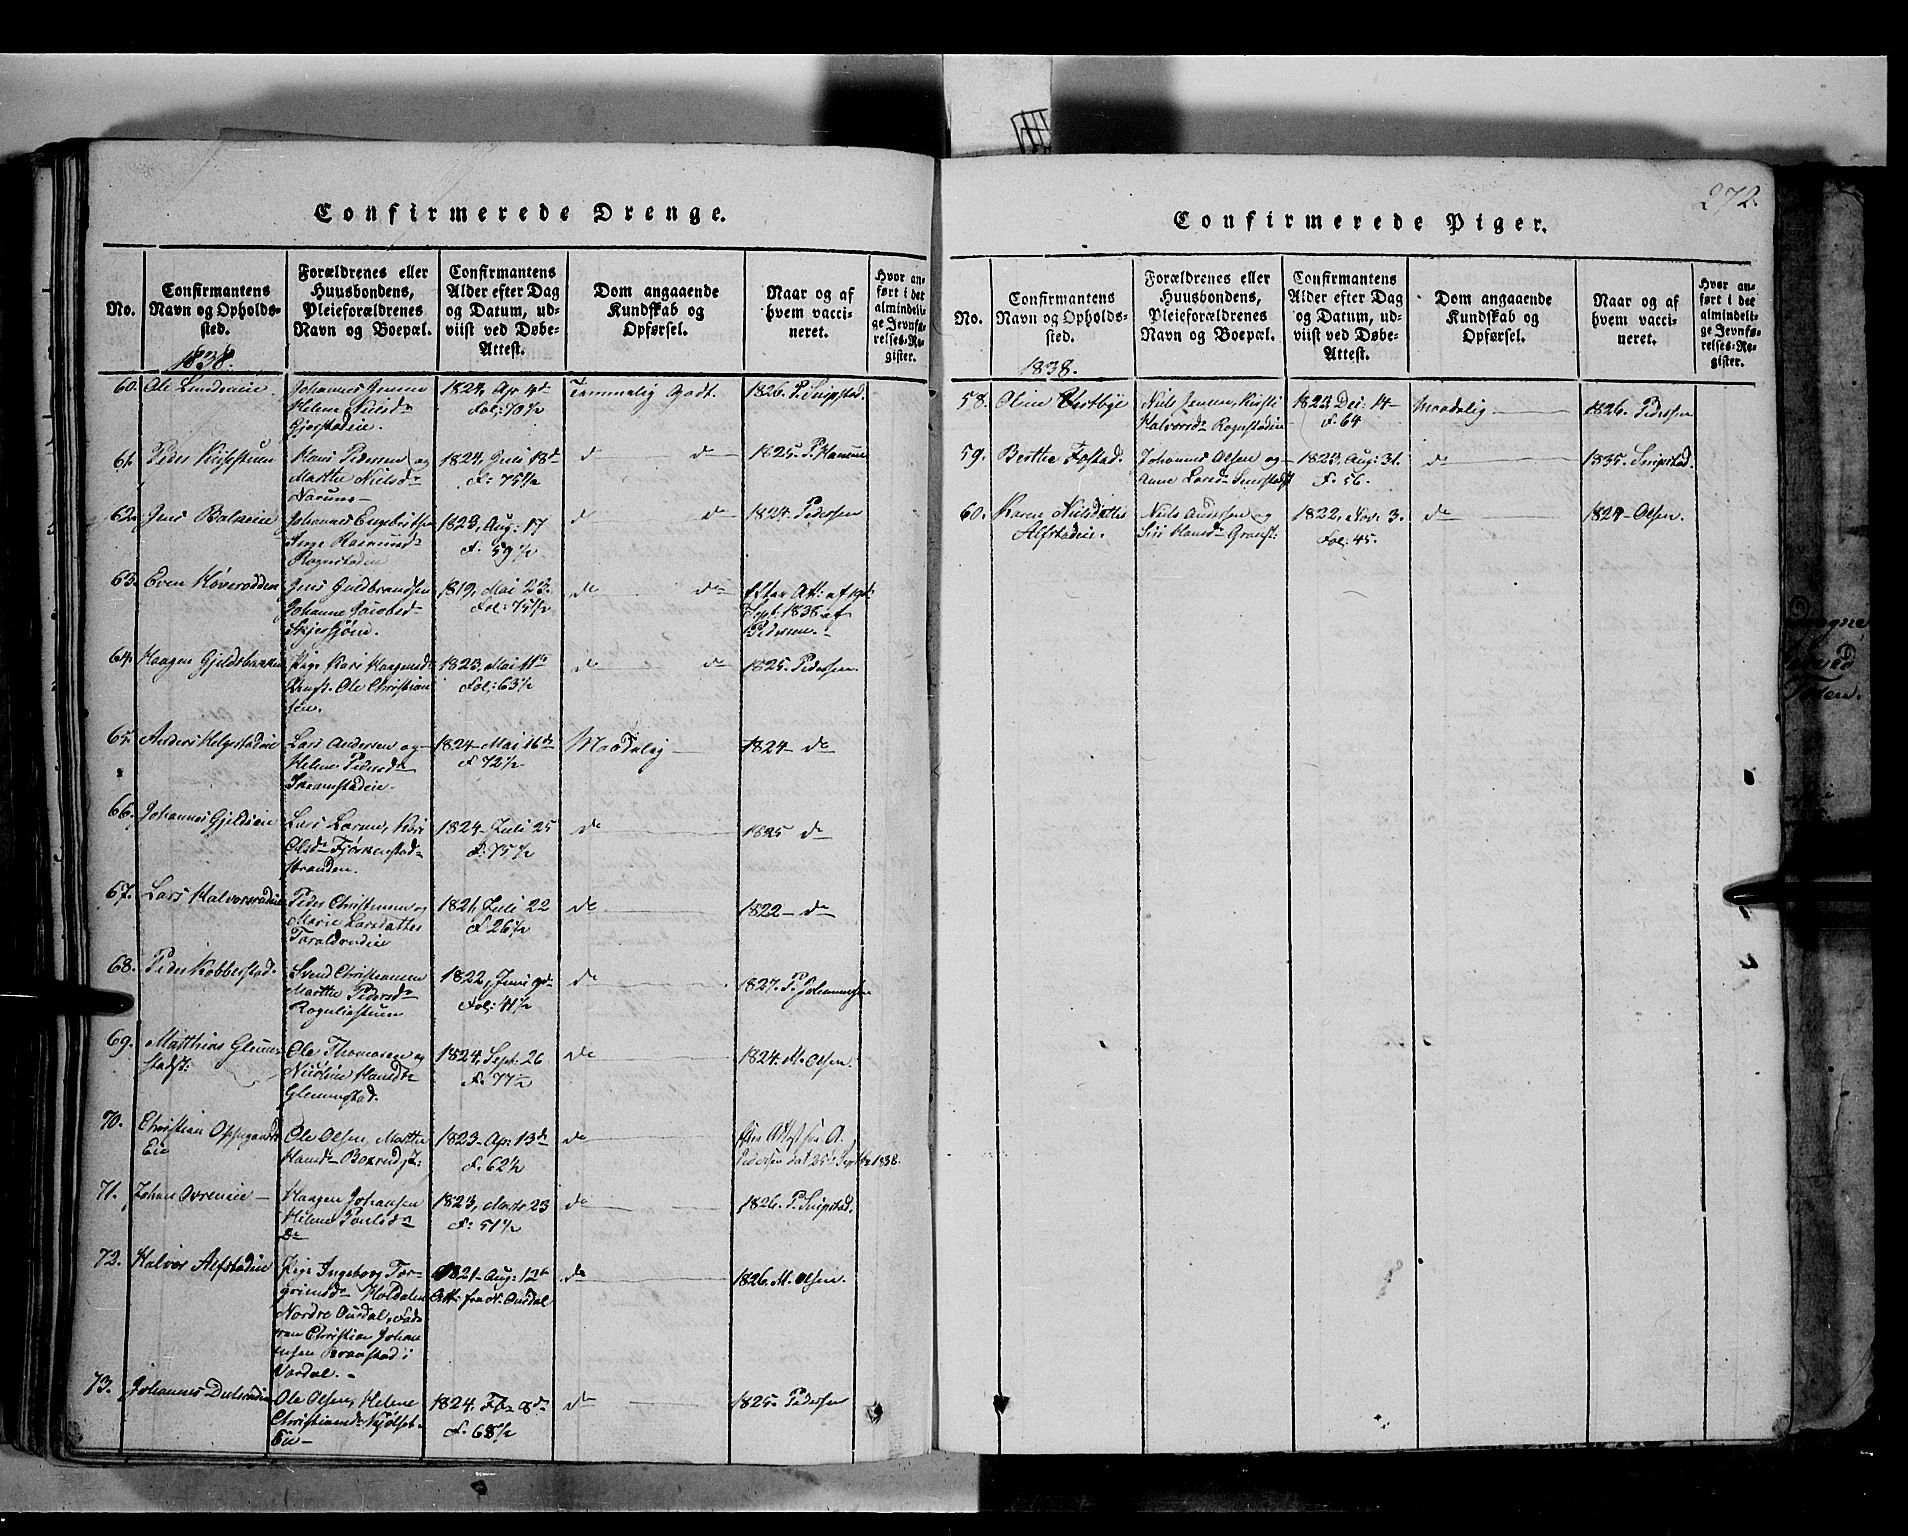 272.
Confirmerede Drenge.
No.
Confirmantens
Navn og Opholds-
sted.
1838.
Forældrenes eller
Huusbondens,
Pleieforældrenes
Navn og Boepæl.
Confirmantens
Alder efter Dag
og Datum, ud-
viist ved Døbe-
Attest.
Dom angaaende
Kundskab og
Opførsel.
Naar og af
hvem vacci-
neret.
Hvor an-
ført i det
almindeli-
ge Jevnfø-
relses-Re-
gister.
60. Ole Lundseie
Johannes Jensen
Helene Nielsd
Gjørstadeie.
1824, Apr 4d
Fol: 70½
Temmelig Godt.
1826. P. Snipstad.
61. Peder
Hans Pedersen og
Marthe Nielsd
1824 Juli 18d
F: 75½
d d
1825. P. Hansen
62. Jens
Johannes Engebritsen
Inge Rasmusd
Rognstadeie
1823, Aug: 17
F. 59½
d d
1824 Pedersen
63. Even Høverodden
Jens Guldbrandsen
Johanne Jacobsd
1819, Mai 23.
Fol: 75½
de de
Efter Att: af
Sept: 1838 af
Pedersen.
64. Haagen Gjeldsbakken
Pige Kari Haagensd
Ole Christian
sen.
1823, Mai 11te
Fol: 63½
de de
1825. Pedersen
65. Anders Helgestadeie
Lars Andersen og
Helene Pedersd
1824 Mai 16d
F 72½
Maadelig
1824 de
66. Johannes Gjeldseie
Lars Larsen, Kari
Olsd
stranden.
1824 Juli 25
F. 75½
de
1825 de
67. Lars Halvorsrudeie
Peder Christensen og
Marie Larsdatter
Taraldrudeie
1821, Juli 22
F 26½
de
1822 de
68. Peder Kobberstad.
Svend Christiansen
Marthe Pedersd
1822, Juni 9d
Fol: 41½
de
1827. P. Johannesen
69. Matthias Glem-
stadst:
Ole Thomasen og
Nicoline Hansd
Glemmestad.
1824, Sept: 26
F. 77½
de
1824. M. Olsen.
70. Christian Oppegaards
Eie
Ole Olsen, Marthe
Hansd
1823 Apr: 13d
F. 62½
de
Efter Attest fra A.
Pedersen dat 25 Septbr 1838.
71. Johan Ovreneie
Haagen Johansen
Helene Poulsd
De
1823, Marts 23
F: 51½
de
1826. P. Snipstad.
72. Halvor Alfstadeie
Pige Ingeborg Tor-
grimsd
Nordre Ousdal, Fade-
ren Christian Johan-
nesen Braastad i
Vardal.
1821 Aug: 12te
Att: fra N. Ousdal
de
1826. M. Olsen.
73. Johannes
Ole Olsen, Helene
Christiansd
Eie
1824. Fb 8d
F. 68½
de
1825. Pedersen
Confirmerede Piger.
No.
Confirmantens
Navn og Opholds-
sted.
1838.
Forældrenes eller
Huusbondens,
Pleieforældrenes
Navn og Boepæl.
Confirmantens
Alder efter Dag
og Datum, ud-
viist ved Døbe-
Attest.
Dom angaaende
Kundskab og
Opførsel.
Naar og af
hvem vacci-
neret.
Hvor an-
ført i det
almindeli-
ge Jevnfø-
relses-Re-
gister.
58. Olene Vestbye
Niels Jensen, Kirsti
Halvorsd Rognstadeie
1823, Dec: 14
F. 64
Maadelig
1826. Pedersen
59. Berthe Fostad.
Johannes Olsen og
Anne Larsd
1823, Aug: 31.
F. 56.
de
1835. Snipstad.
60. Karen Nielsdatter
Alfstadeie.
Niels Andersen og
Siri Hansd
1822, Nov: 3.
Fol: 45.
de
1824 Olsen.